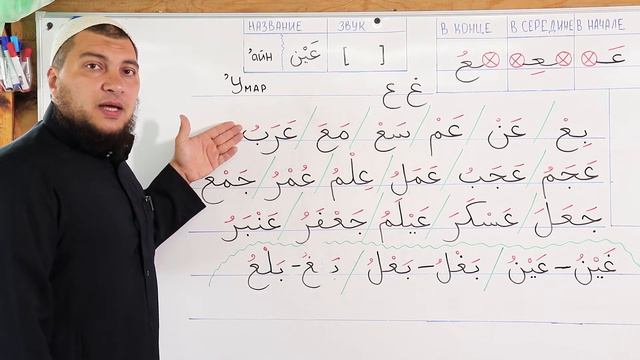 НАЗВАНИЕ ЗВУК
'айн عَيْن [ ]
В КОНЦЕ В СЕРЕДИНЕ В НАЧАЛЕ
ـعُ ـعِـ عَـ
'Умар
غ ع
بِعْ / عَنْ / عَمْ / سَعْ / مَعَ / عَرَبُ
عَجَمُ / عَجَبُ / عَمَلُ / عِلْمُ / عُمْرُ / جَمْعُ
جَعَلَ / عَسْكَرَ / عَيْلَمُ / جَعْفَرُ / عَنْبَرُ
غَيْنُ – عَيْنُ / بَغْلُ – بَعْلُ / بَلْعُ